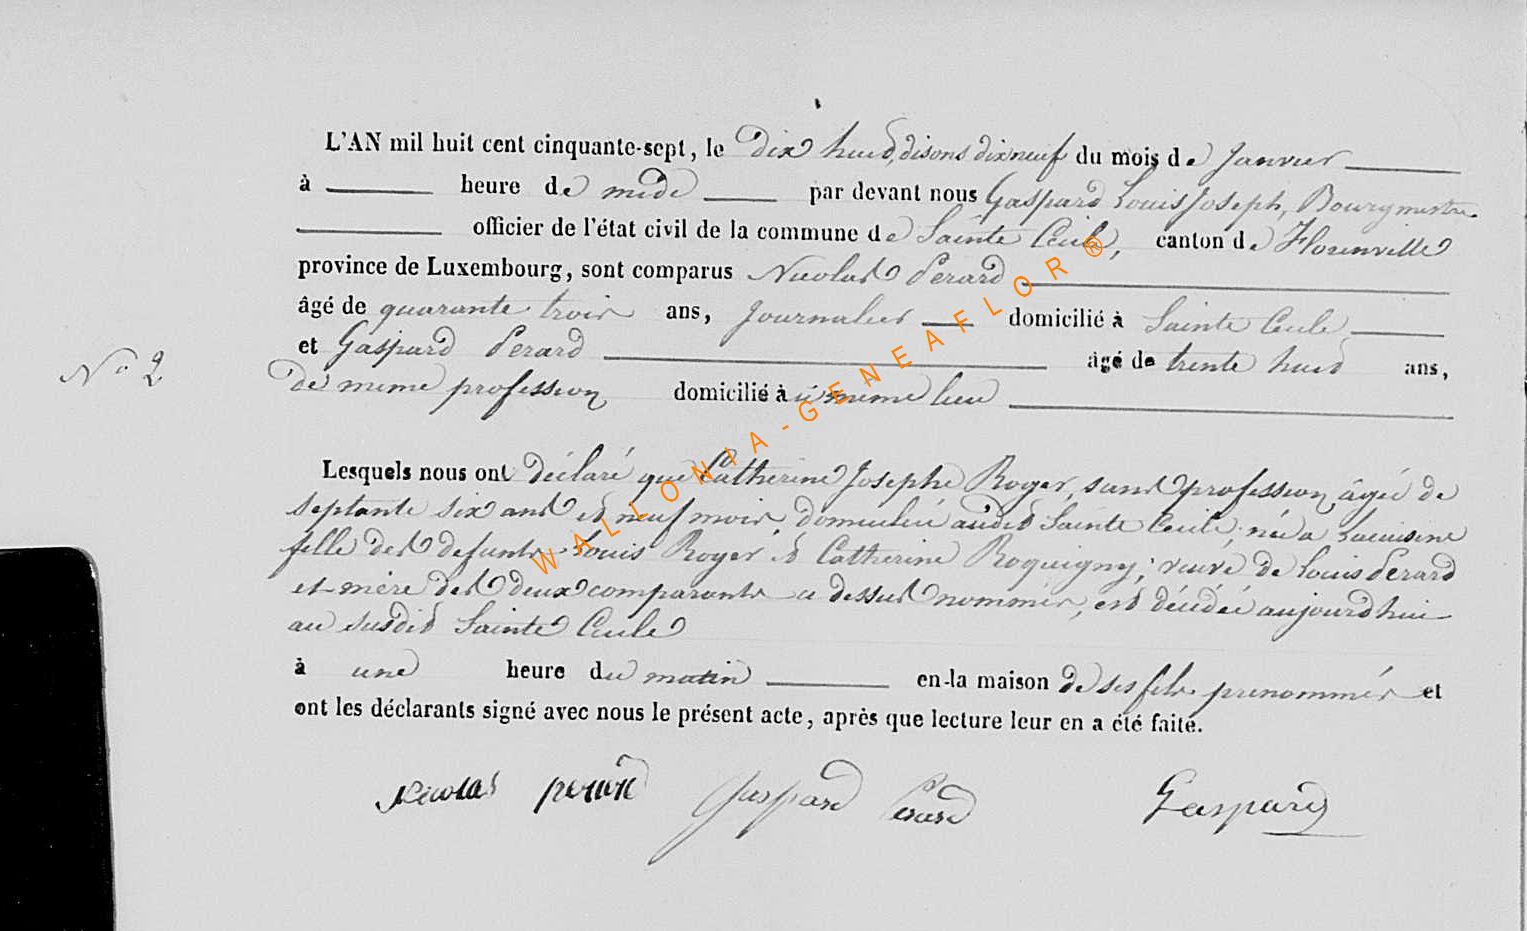 L'AN mil huit cent cinquante-sept, le Dix huit, disons dix neuf du mois de Janvier
à heure de midi par devant nous Gaspard Louis Joseph, Bourgmestre
officier de l'état civil de la commune de Sainte Cécile, canton de Florenville
province de Luxembourg, sont comparus Nicolas Perard
âgé de quarante trois ans, Journalier domicilié à Sainte Cécile
et Gaspard Perard âgé de trente huit ans,
N° 2
De meme profession domicilié à meme lieu
Lesquels nous ont déclaré que Catherine Josephe Roger, sans profession âgée de
septante six ans et neuf mois domiciliée audit Sainte Cécile, née a Lacuisine
fille des defunts Louis Roger et Catherine Roquigny; veuve de Louis Perard
et mère des deux comparants ci dessus nommés, est décédée aujourd'hui
au susdit Sainte Cécile
à une heure du matin en la maison de ses fils prenommés et
ont les déclarants signé avec nous le présent acte, après que lecture leur en a été faite.
Nicolas perard Gaspard Perard Gaspard
WALLONIA-GENEAFLOR®